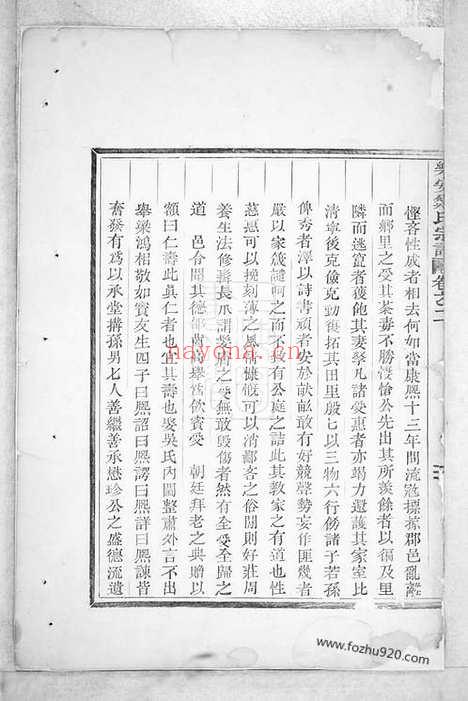 慳吝性成者相去何如當康熙十三年間流寇摽掠郡邑亂離
而鄉里之受其荼毒不勝悽愴公先出其所羨餘者以徧及里
隣而逃竄者獲飽其妻孥凡諸受惠者亦竭力還護其家室比
清寧後克儉克勤復拓其田里殷七以三物六行傍諸子若孫
俾秀者澤以詩書頑者安於畎畝敢有好競聲勢妄作匪幾者
嚴以家箴譴訶之而不具有公庭之詰此其敎家之有道也性
慈愿可以挽刻薄之風慷慨可以消鄙吝之俗閒則好莊周
養生法修髯長爪謂髮膚之受無敢毀傷者然有全受全歸之
道 邑令聞其德郁舉為飲賓受 朝廷拜老之典贈以
額曰仁壽此眞仁者也宜其壽也娶吳氏內閫整肅外言不出
舉梁鴻相敬如賓友生四子曰熙詔曰熙諤曰熙詳曰熙諫皆
奮發有為以承堂搆孫男七人善繼善承懋珍公之盛德流遺
氏宗譜 卷之二
nayona.cn
www.fozhu920.com